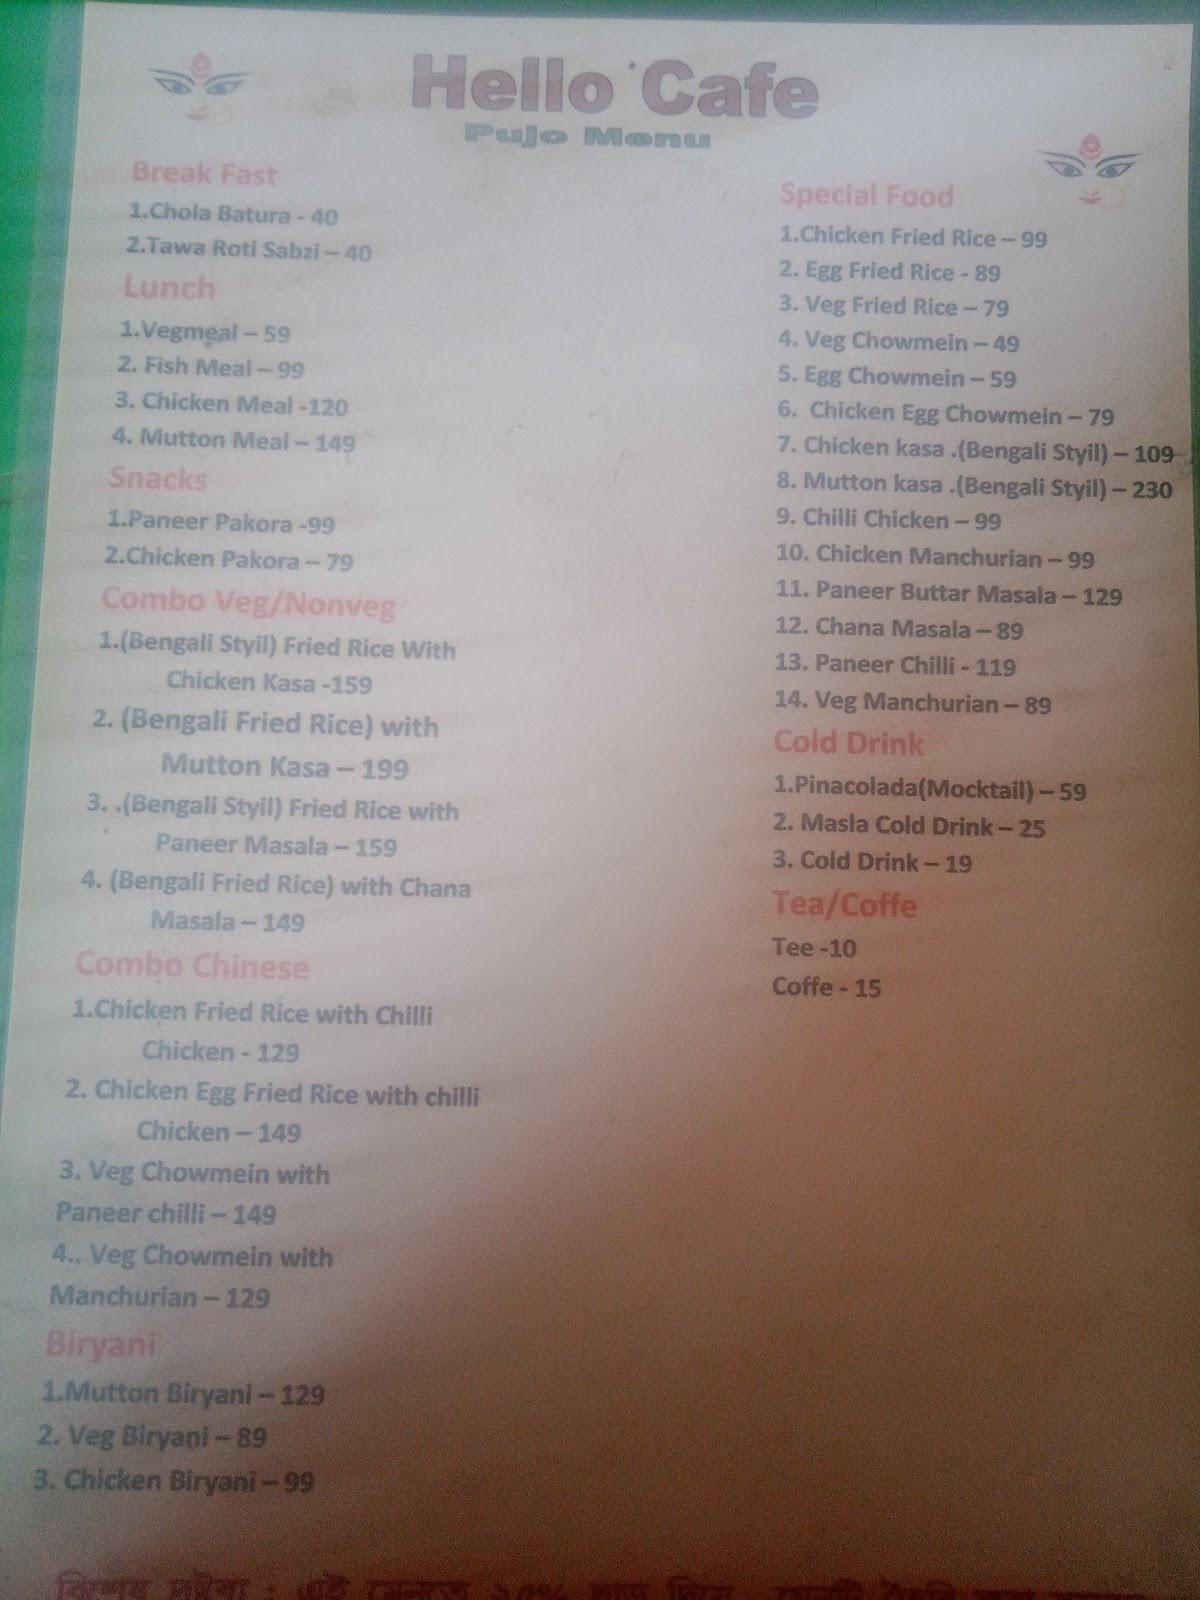 Hello Cafe
Pujo Menu
Break Fast
1.Chola Batura - 40
2.Tawa Roti Sabzi – 40
Lunch
1.Vegmeal – 59
2. Fish Meal – 99
3. Chicken Meal -120
4. Mutton Meal – 149
Snacks
1.Paneer Pakora -99
2.Chicken Pakora – 79
Combo Veg/Nonveg
1.(Bengali Styil) Fried Rice With
Chicken Kasa -159
2. (Bengali Fried Rice) with
Mutton Kasa – 199
3. .(Bengali Styil) Fried Rice with
Paneer Masala – 159
4. (Bengali Fried Rice) with Chana
Masala – 149
Combo Chinese
1.Chicken Fried Rice with Chilli
Chicken - 129
2. Chicken Egg Fried Rice with chilli
Chicken – 149
3. Veg Chowmein with
Paneer chilli – 149
4.. Veg Chowmein with
Manchurian – 129
Biryani
1.Mutton Biryani – 129
2. Veg Biryani – 89
3. Chicken Biryani – 99
Special Food
1.Chicken Fried Rice – 99
2. Egg Fried Rice - 89
3. Veg Fried Rice – 79
4. Veg Chowmein – 49
5. Egg Chowmein – 59
6. Chicken Egg Chowmein – 79
7. Chicken kasa .(Bengali Styil) – 109
8. Mutton kasa .(Bengali Styil) – 230
9. Chilli Chicken – 99
10. Chicken Manchurian – 99
11. Paneer Buttar Masala – 129
12. Chana Masala – 89
13. Paneer Chilli - 119
14. Veg Manchurian – 89
Cold Drink
1.Pinacolada(Mocktail) – 59
2. Masla Cold Drink – 25
3. Cold Drink – 19
Tea/Coffe
Tee -10
Coffe - 15